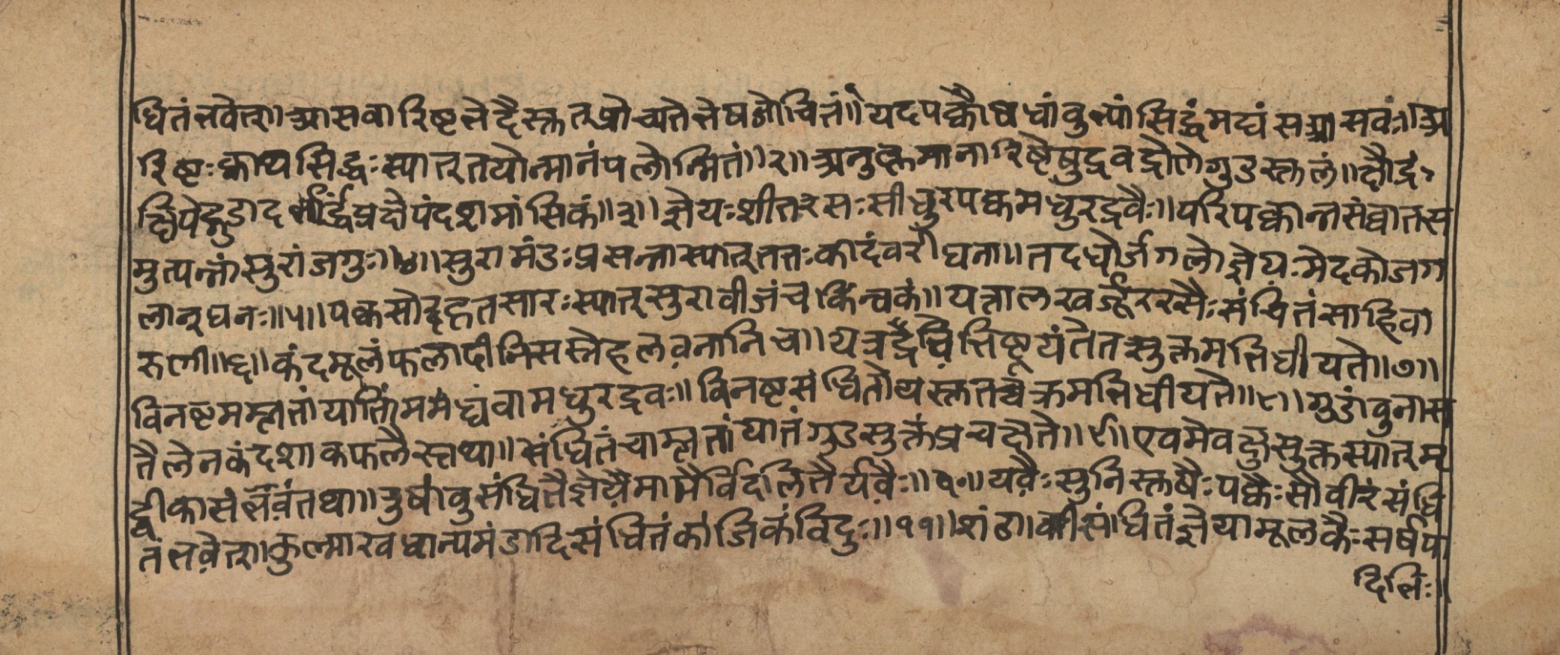 धितंभवेत्॥१॥आसवारिष्टभेदैस्तुतत्प्रोच्यतेभेषजोचितं॥यदपक्कौषधांबुभ्यांसिद्धंमद्यंसआसवः॥अ
रिष्टःक्काथसिद्धःस्यात्तयोन्मानंपलोन्मितं॥२॥अनुक्तमानारिष्टेषुद्रवद्रोणेगुडस्तुलं॥क्षौद्रं
क्षिपेद्गुडादर्द्धंप्रक्षेपंदशमांसिकं॥३॥ज्ञेयःशीतरसःसीधुरपक्कमधुरद्रवैः॥परिपक्कान्नसंधानस
मुत्पन्नांसुरांजगुः॥४॥सुरामंडःप्रसन्नास्यात्ततःकादंवरीघना॥तदधोर्जगलोज्ञेयःमेदकोजग
लात्घनः॥५॥पक्कसोद्धृतसारःस्यात्सुरावीजंचकिंन्वकं॥यत्तालखर्ज्जूररसैःसंधितंसाहिवा
रुणी॥६॥कंदमूलंफलादीनिसस्नेहलवनानिच॥यत्रद्रवेभिषूयंतेतत्सुक्तमभिधीयते॥७॥
विनष्टमम्लतांयातिंमर्मद्यंवामधुरद्रवः॥विनष्टसंधितोयस्तुतच्चुक्रमभिधीयते॥८॥गुडांवुनास
तैलेनकंदशाकफलैस्तथा॥संधितंचाम्लतांयातंगुडसुक्तंप्रचक्षते॥९॥एवमेवक्षुसुक्तस्यात्मृ
द्वीकासंभवंतथा॥तुषांवुसंधितैज्ञेयैमामैर्विदलितैर्यवैः॥१०॥यवैःसुनिस्तुषैःपक्कैःसौवीरंसंधि
तंभवेत्॥कुल्माखधान्यमंडादिसंधितंकांजिकंविदुः॥११॥शंढाकीसंधितंज्ञेयामूलकैःसर्षपा
दिभिः॥